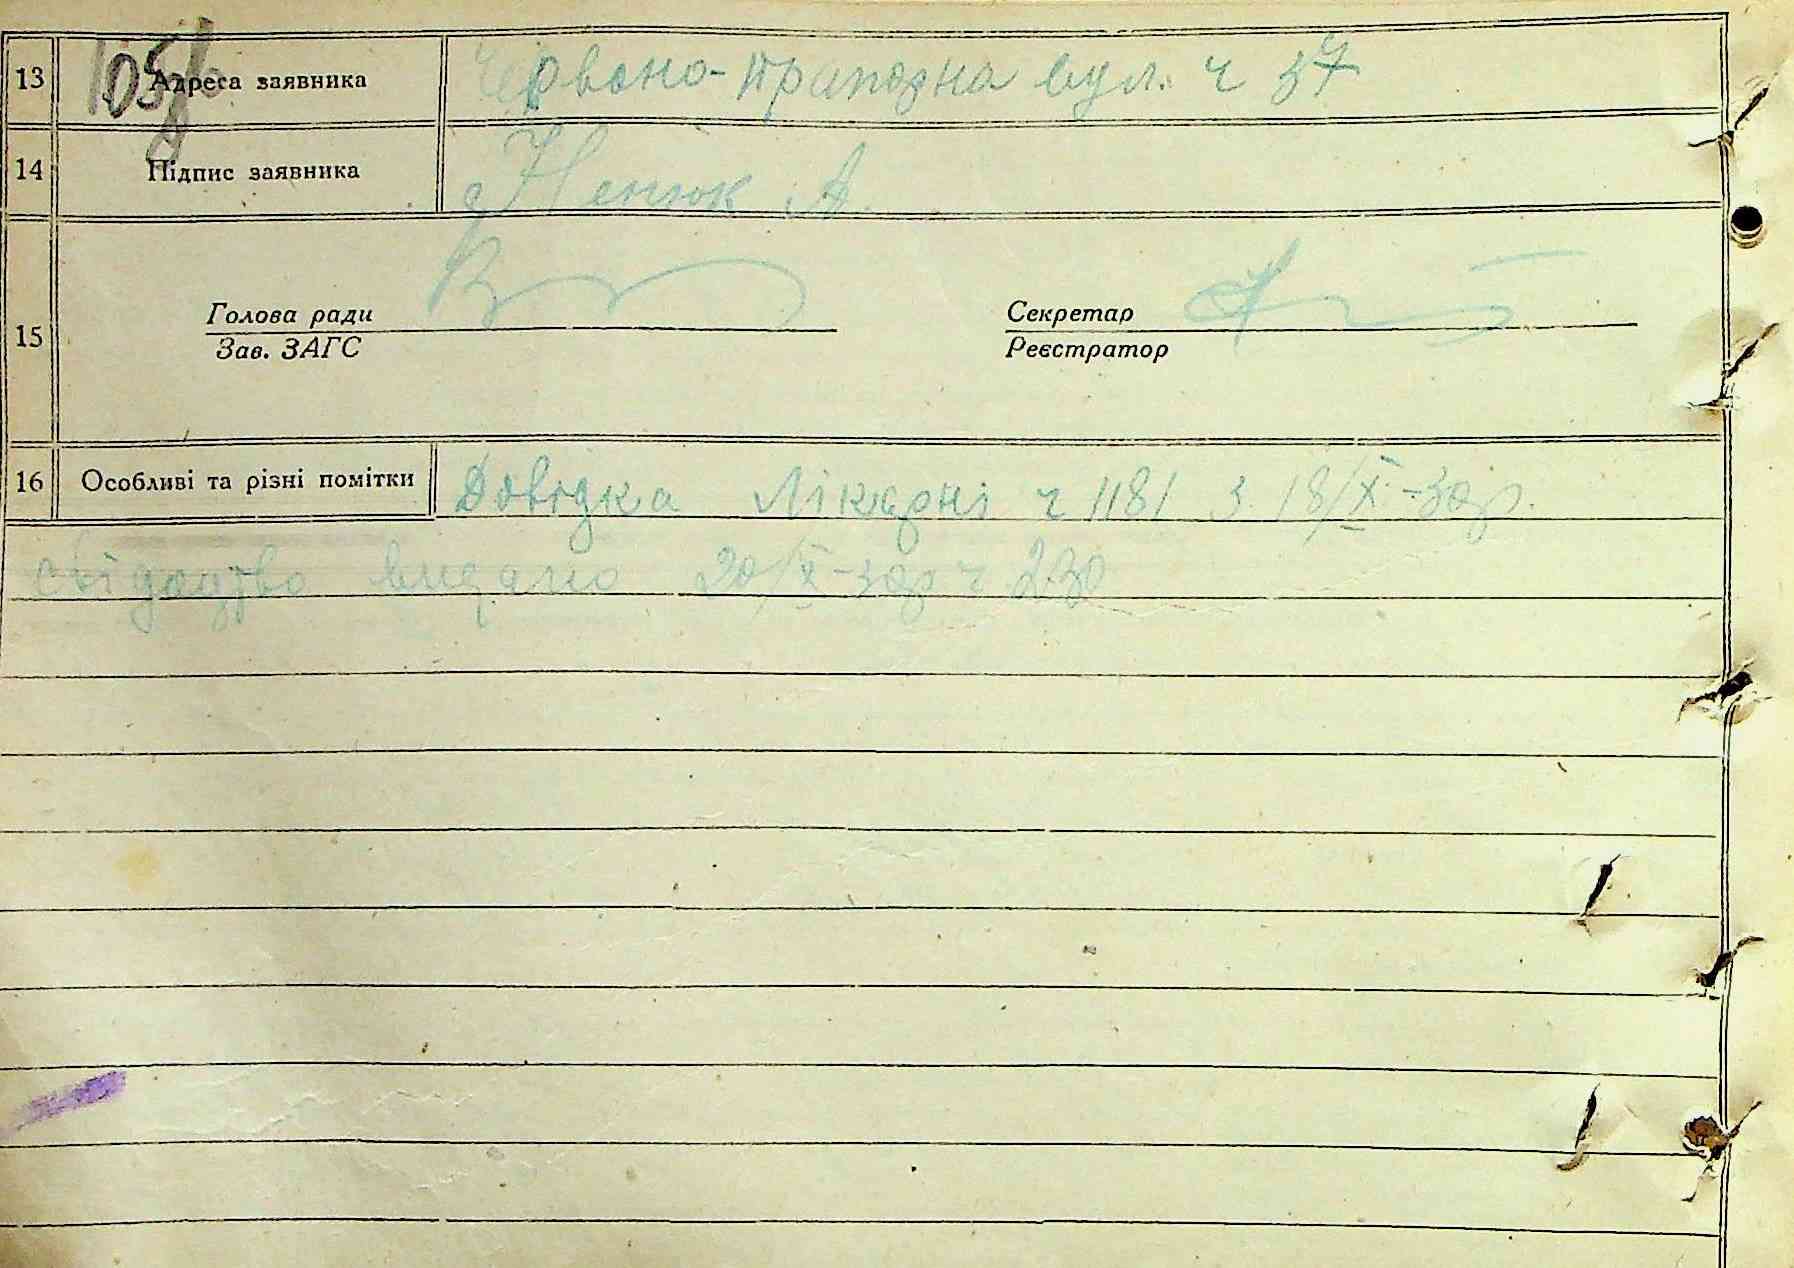 13 Адреса заявника Червоно-прапорна вул. ч 37
14 Підпис заявника Ненюк А.
15 Голова ради Секретар
Зав. ЗАГС Реєстратор
16 Особливі та різні помітки Довідка Лікарні ч 1181 з 18/X-38р.
свідоцтво видано 20/X-38р ч 230